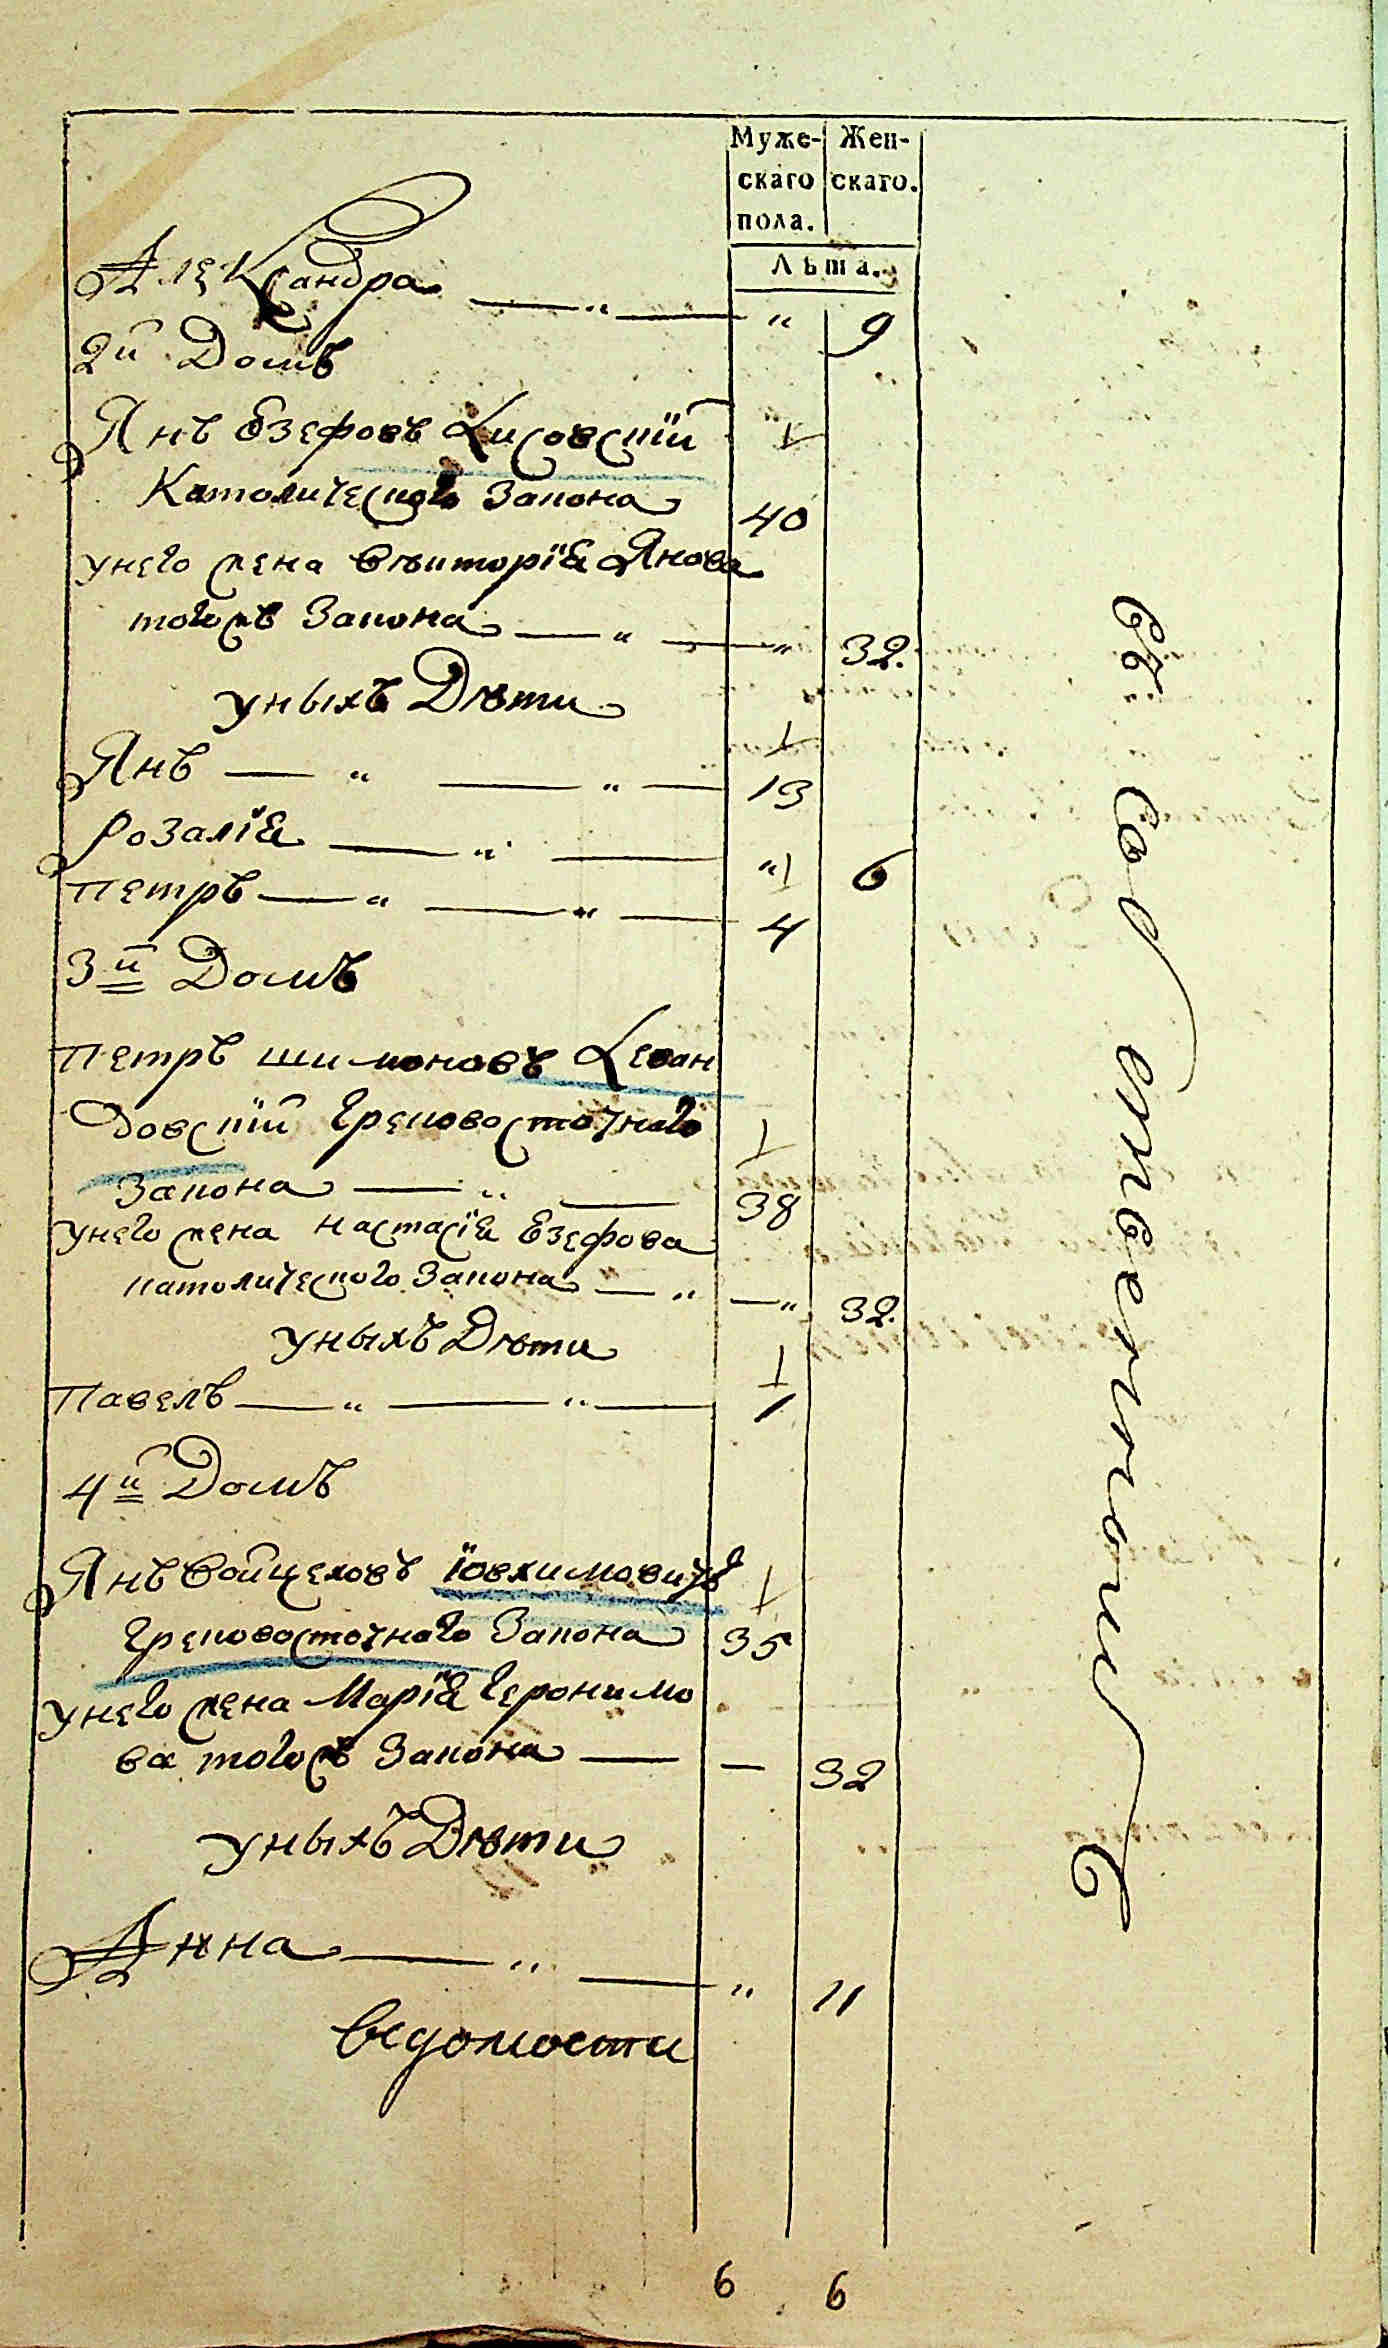 Муже- Жен-
скаго скаго.
пола.
Лѣта.
Александра — " — " 9
2й Домъ
Янъ Езефовъ Лисовскїй
Католического Закона 40
унего жена Викторїя Янова
тогожъ Закона — " — " 32.
уныхъ Дѣти
Янъ — " — " — 13
Розалїя — " — " 6
Петръ — " — " — 4
3й Домъ
Петръ Шимоновъ Леван
довскїй Грековосточнаго
Закона — " — 38
унего жена Настасїя Езефова
католического Закона — " — " 32.
уныхъ Дѣти
Павелъ — " — " — 1
4й Домъ
Янъ Войцеховъ Їовхимовичъ
Грековосточнаго Закона 35
унего жена Марїя Геронимо
ва тогожъ Закона — — 32
уныхъ Дѣти
Анна — " — " 11
ведомости
6 6